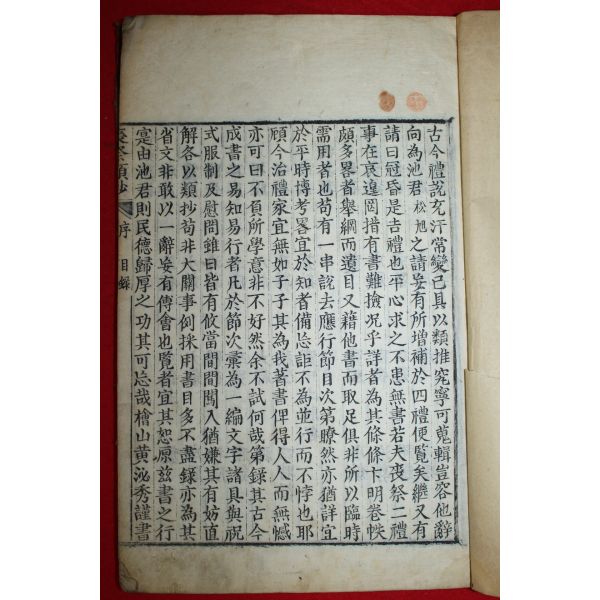 古今禮說充汗常變已具以類推究寧可蒐輯豈容他辭
向為池君松旭之請妄有所增補於四禮便覽矣繼又有
請曰冠昏是吉禮也平心求之不患無書若夫喪祭二禮
事在哀遑罔措有書難撿况乎詳者為其條條卞明卷帙
頗多畧者舉綱而遺目又藉他書而取足俱非所以臨時
需用者也苟有一串說去應行節目次第瞭然亦猶詳宜
於平時搏考畧宜於知者備忘詎不為並行而不悖也耶
顧今治禮家宜無如子子其為我著書俾得人人而無憾
亦可曰不負所學意非不好然余不試何哉第録其古今
成書之易知易行者凡於節次彙為一編文字諸具與祝
式服制及慰問雖曰皆有攸當間間闖入猶嫌其有妨直
解各以類抄苟非大關事例採用書目多不盡録亦為其
省文非敢以一辭妄有傳會也覧者宜其恕原玆書之行
寔由池君則民德歸厚之功其可忘哉檜山黄泌秀謹書
喪祭類抄 序 目録